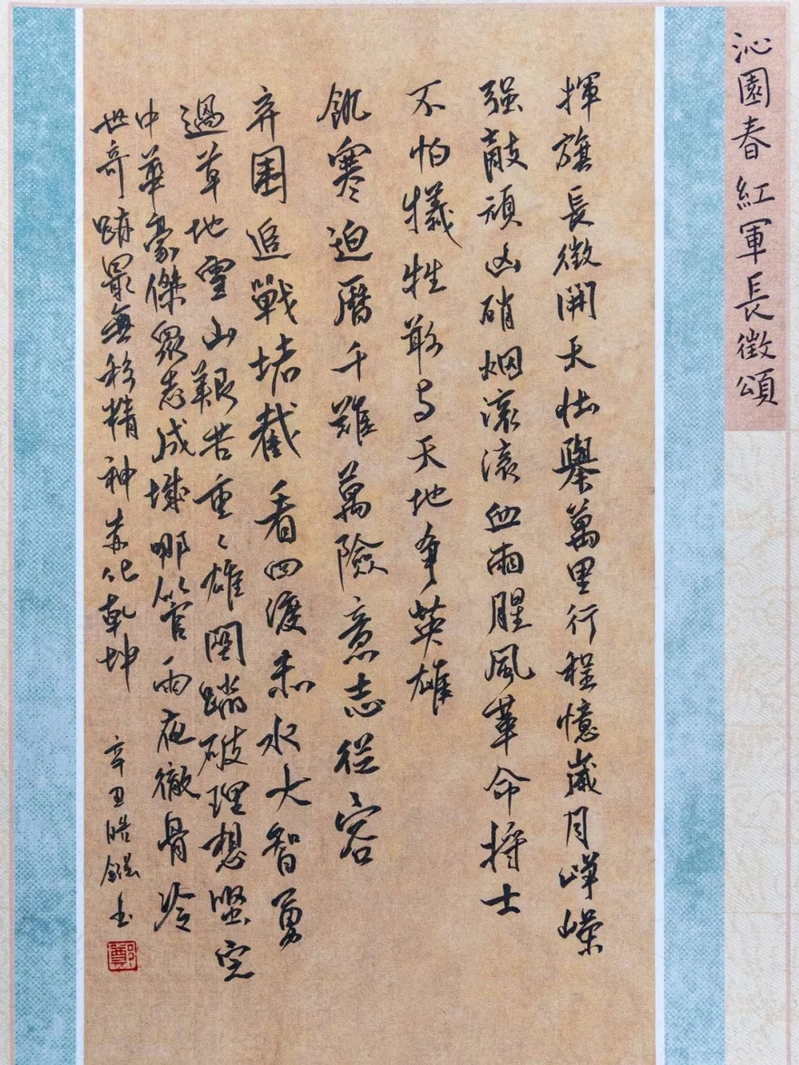 沁園春 紅軍長徵頌
揮旗長徵開天壯舉萬里行程憶歲月崢嶸
强敵頑凶硝烟滚滚血雨腥風革命將士
不怕犧牲敢与天地争英雄
飢寒迫曆千難萬險意志從容
弃圍追戰堵截看四渡赤水大智勇
過草地雪山艱苦重々雄關踏破理想堅定
中華豪傑衆志成城哪管雨夜徹骨冷
世奇跡最無私精神赤化乾坤 辛丑皓书